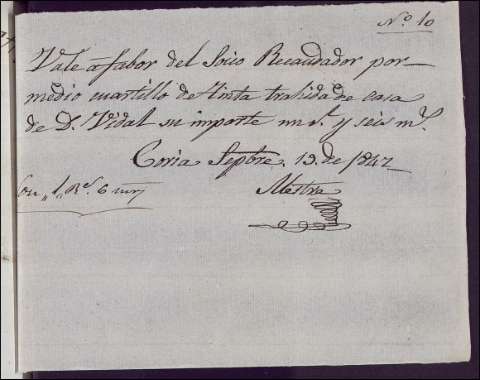 Nº 10
Vale a fabor del Socio Recaudador por
medio cuartillo de tinta trahida de casa
de D. Vidal su importe un r.^ y seis m.^
Coria Sepbre. 13 de 1847
Son „ 1 „ R.^ 6 mrs
Mestra